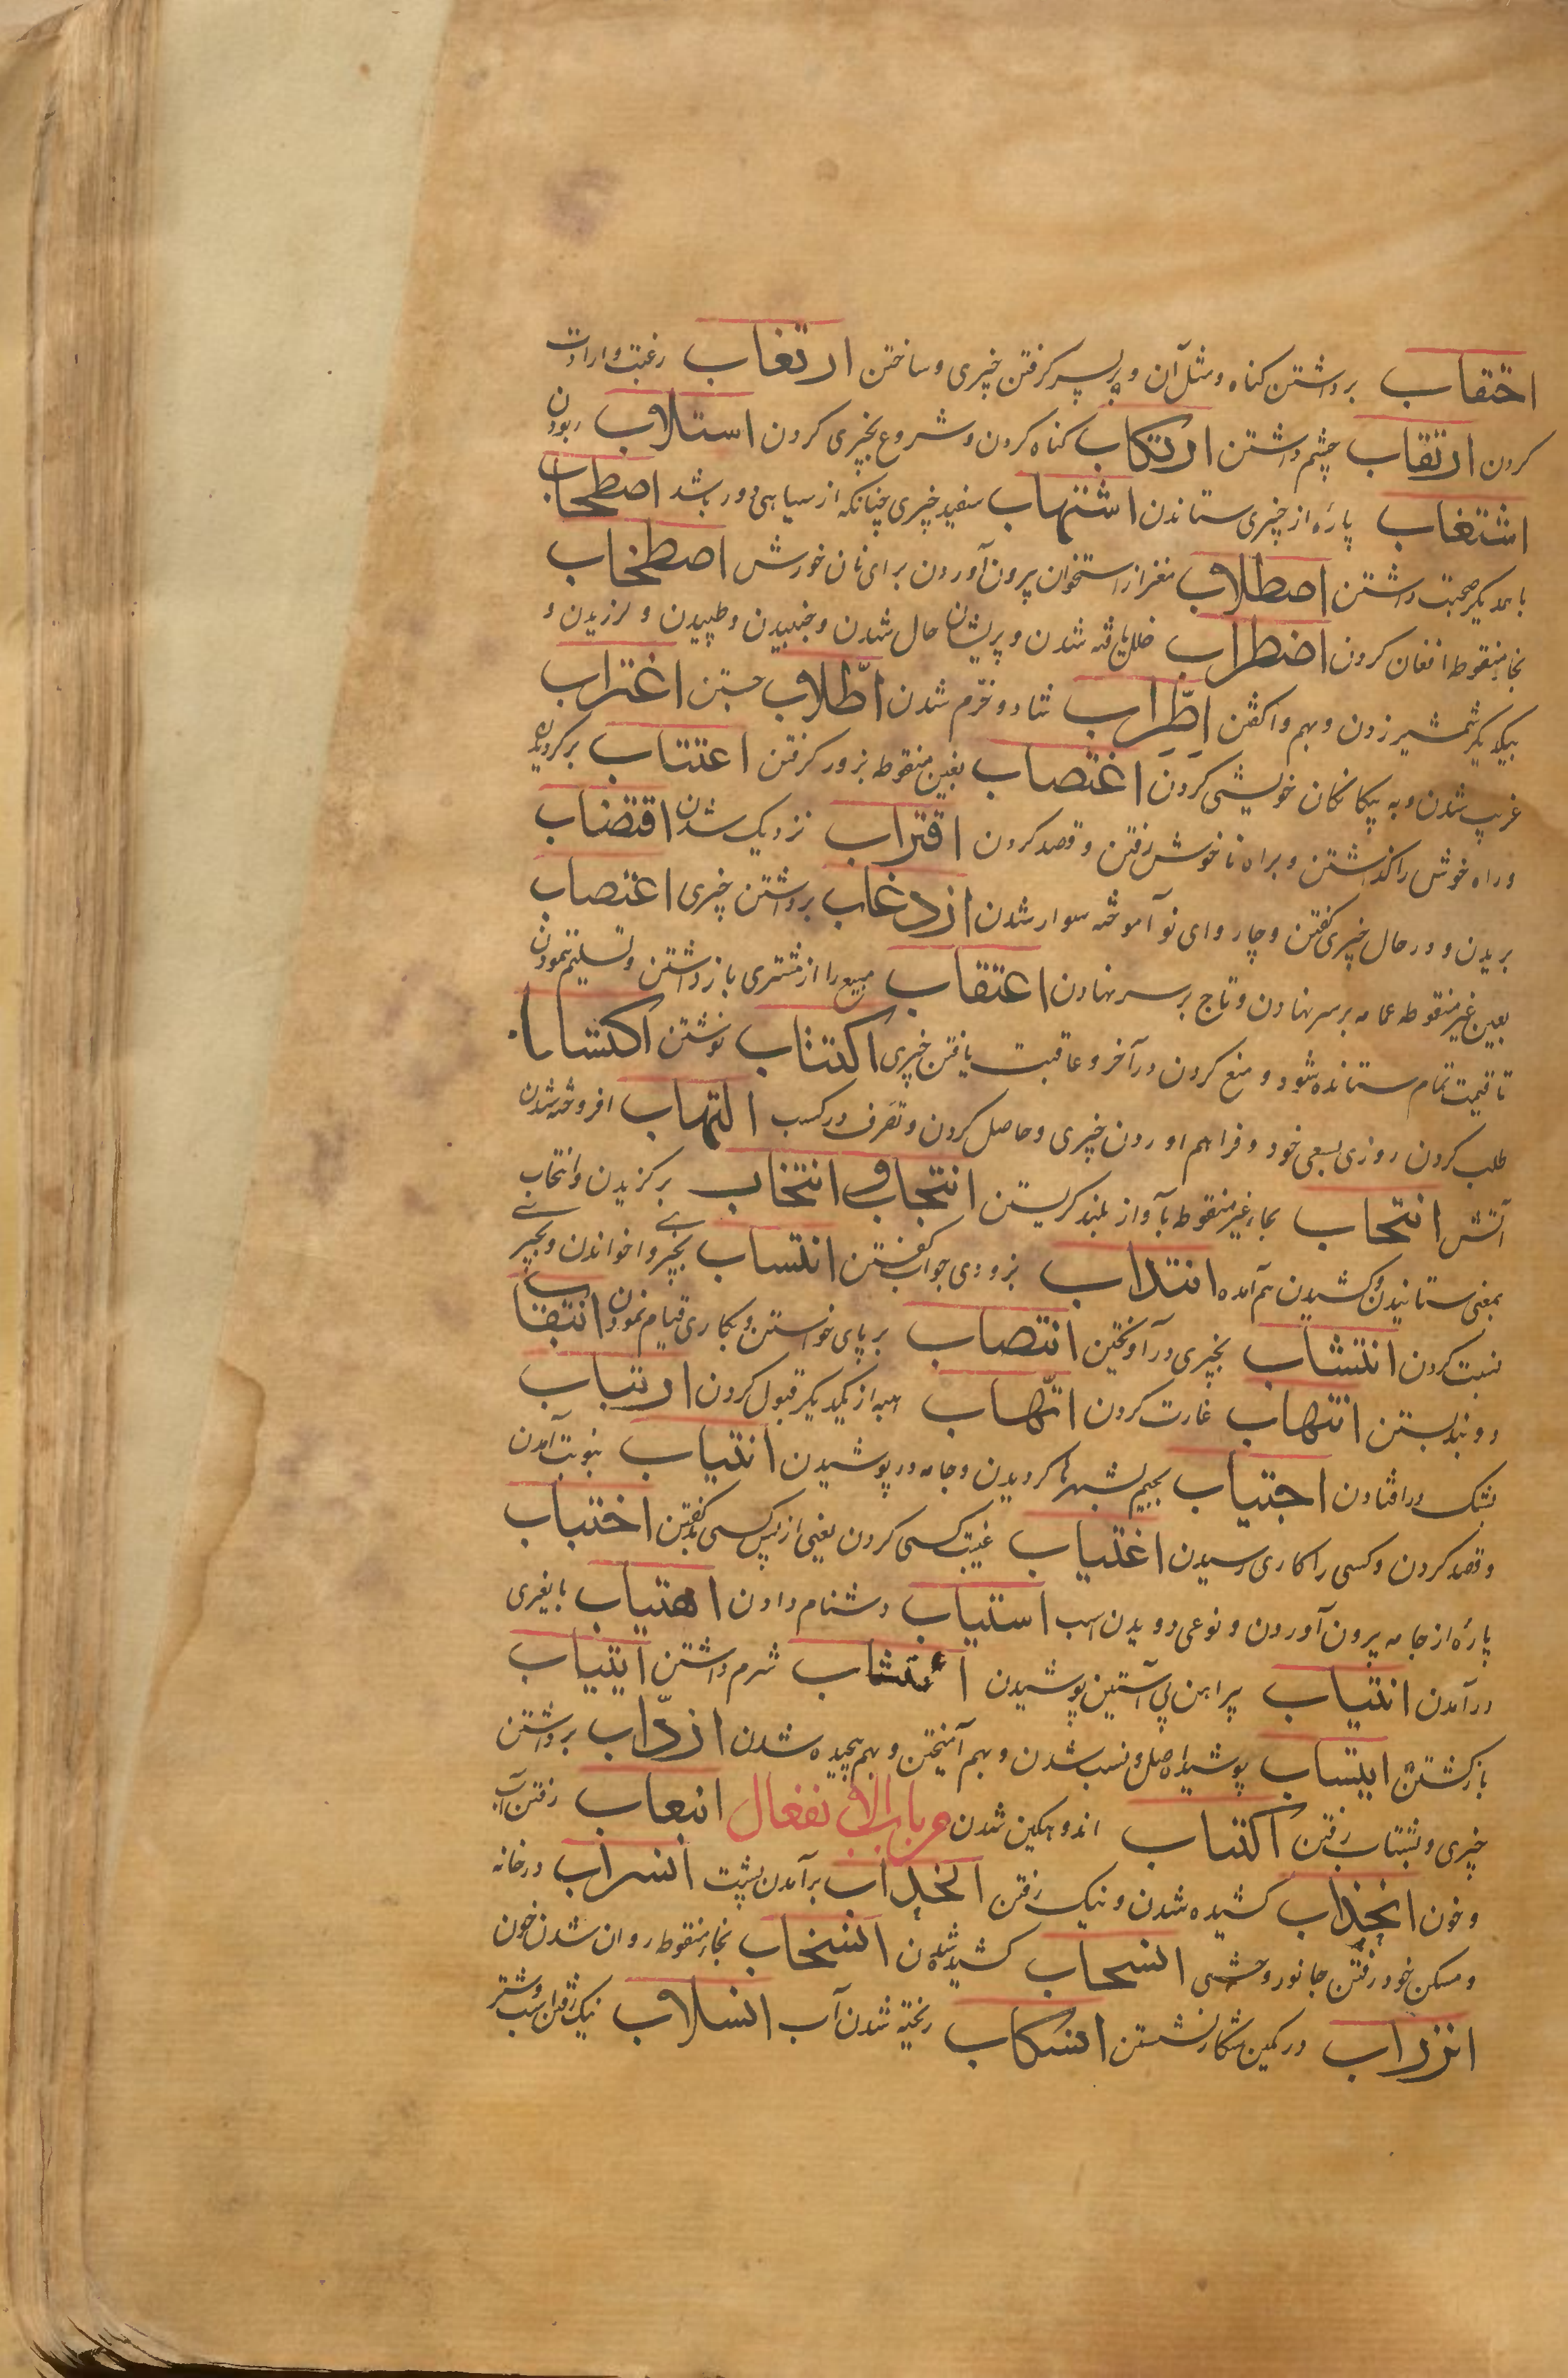 احتقاب برداشتن کناه ومثل آن و برپس کرفتن چیزی وساختن ارتغاب رغبت وارادت
کردن ارتقاب چشم داشتن ارتکاب کناه کردن وشروع بچیزی کردن استلاب ربودن
اشتغاب پارهٔ از چیزی ستاندن اشتهاب سفید چیزی چنانکه از سیاهی دور باشد اصطحاب
باهمدیکر صحبت داشتن اصطلاب مغز از استخوان بیرون آوردن برای نان خورش اصطخاب
بخاء منقوطه افغان کردن اضطراب خلل یافته شدن و پریشان حال شدن و جنبیدن وطپیدن و لرزیدن و
بیکدیکر شمشیر زدن وبهم واکفتن اطّراب شاد و خرّم شدن اطّلاب جستن اغتراب
غریب شدن و به بیکانکان خویشی کردن اغتصاب بغین منقوطه بزور کرفتن اعتتاب برکردیدن
وراه خوش را کذاشتن و براه ناخوش رفتن و قصد کردن اقتراب نزدیک شدن اقتضاب
بریدن و در حال چیزی کفتن و چاروای نو آموخته سوار شدن ازدغاب برداشتن چیزی اعتصاب
بعین غیر منقوطه عمامه بر سر نهادن و تاج بر سر نهادن اعتقاب مبیع را از مشتری بازداشتن و تسلیم ننمودن
تا قیمت تمام ستانده شود و منع کردن در آخر و عاقبت یافتن چیزی اکتتاب نوشتن اکتساب
طلب کردن روزی بسعی خود و فراهم اوردن چیزی و حاصل کردن و تصرف در کسب التهاب افروخته شدن
آتش انتحاب بحاء غیر منقوطه بآواز بلند کریستن انتجاب و انتخاب برکزیدن وانتخاب
بمعنی ستانیدن و کشیدن هم آمده انتداب بزودی جواب کفتن انتساب بچیزی واخواندن و بچیزی
نسبت کردن انتشاب بچیزی در آویختن انتصاب برپای خواستن و بکاری قیام نمودن انتقاب
روبند بستن انتهاب غارت کردن اتّهاب هبه از یکدیکر قبول کردن ارتیاب
بشک در افتادن اجتیاب بجیم بشهرها کردیدن و جامه در پوشیدن انتیاب بنوبت آمدن
و قصد کردن و کسی را کاری رسیدن اغتیاب غیبت کسی کردن یعنی از پس کسی بد کفتن اختباب
پارهٔ از جامه بیرون آوردن و نوعی دویدن اسب استباب دشنام دادن اهتیاب
درآمدن انتیاب پیراهن بی آستین پوشیدن شرم داشتن ایتیاب
بازکشتن ایتساب پوشیده اصل و نسب شدن و بهم آمیختن و بهم پیچیده شدن ازدّاب برداشتن
چیزی و بشتاب رفتن اکتئاب اندوهکین شدن باب الانفعال انبعاب رفتن آب
و خون انجذاب کشیده شدن و نیک رفتن انحداب برآمدن پشت انسراب در خانه
و مسکن خود رفتن جانور وحشی انسحاب کشیده شدن انسخاب بخاء منقوطه روان شدن خون
انزراب در کمین شکار نشستن انسکاب ریخته شدن آب انسلاب نیک رفتن اسب و شتر